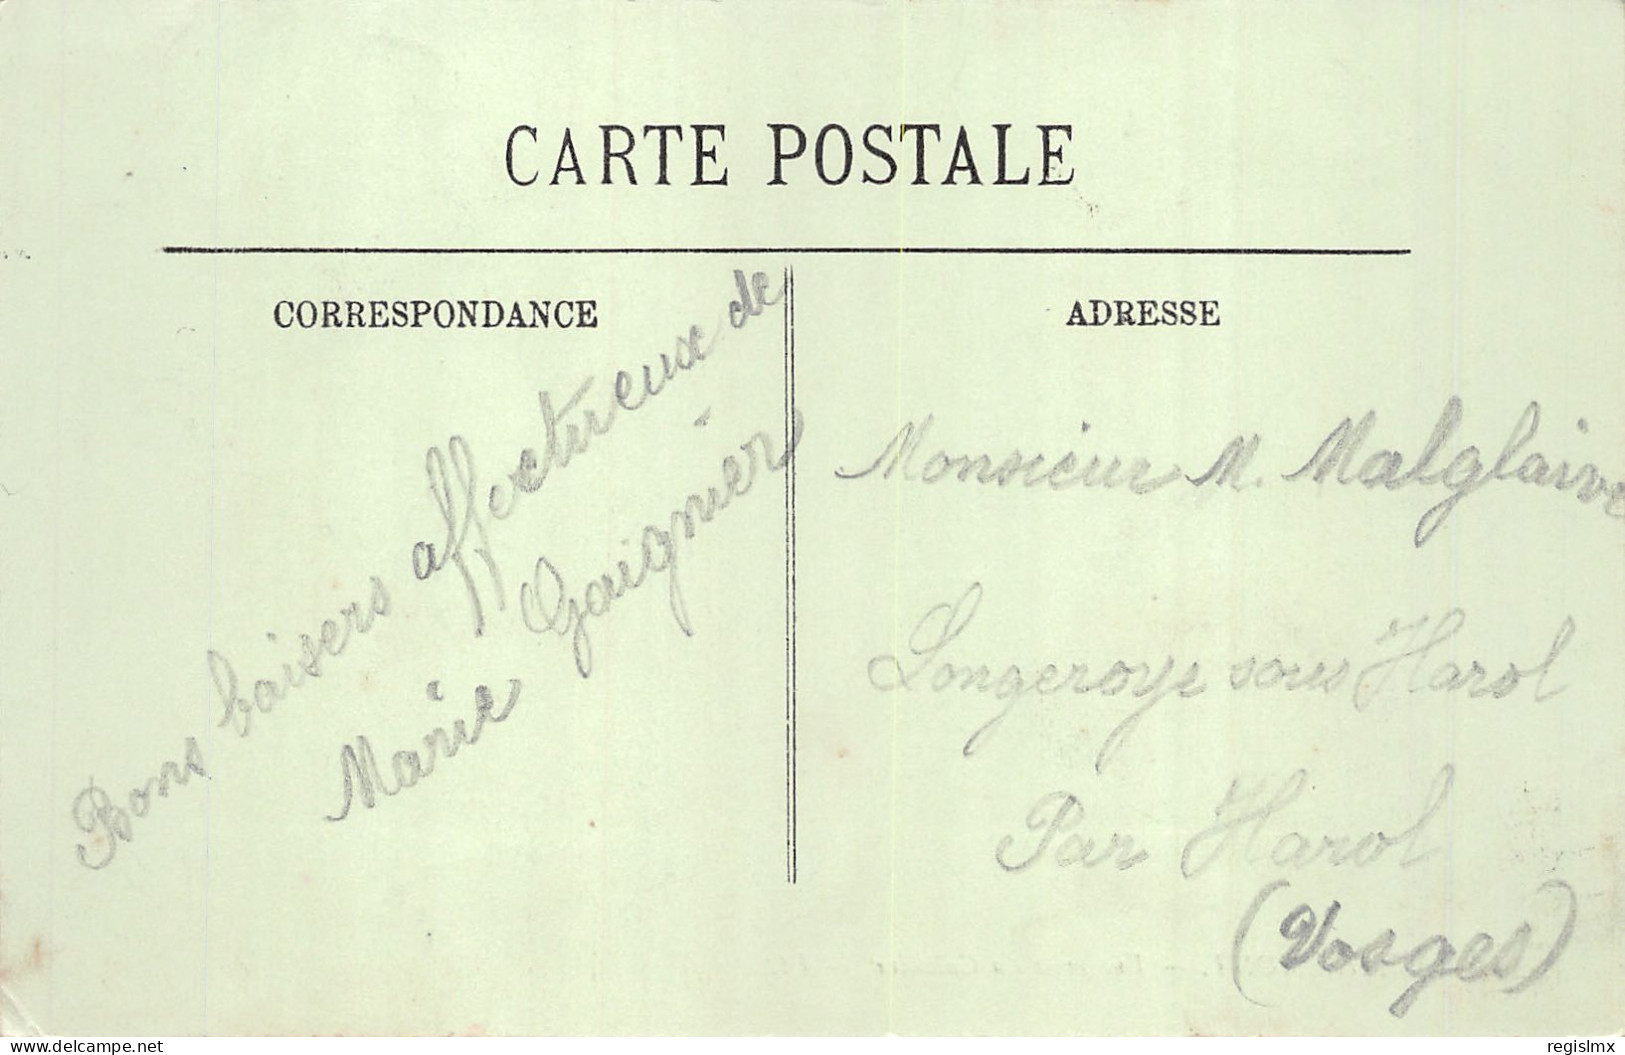 CARTE POSTALE
CORRESPONDANCE
ADRESSE
Bons baisers affectueux de
Marie Gaignier
Monsieur M. Malglaive
Longeroye sous Harol
Par Harol
(Vosges)
delcampe.net
regislmx